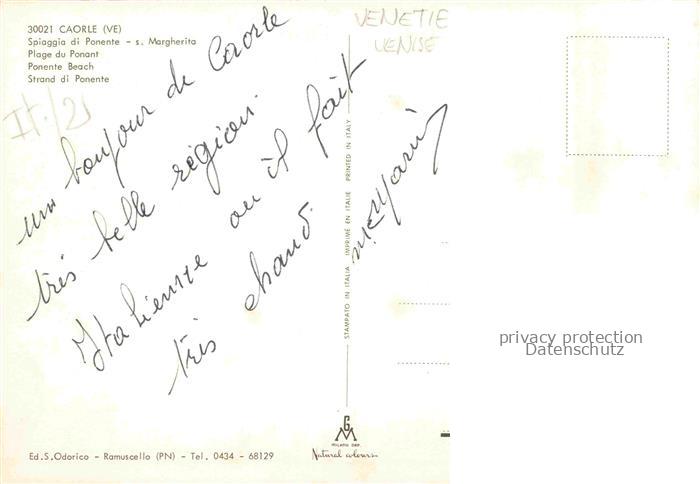 30021 CAORLE (VE)
Spiaggia di Ponente - s. Margherita
Plage du Ponant
Ponente Beach
Strand di Ponente
VENETIE
VENISE
It./21
un bonjour de Caorle
très belle région.
Italienne ou il fait
très chaud.
STAMPATO IN ITALIA IMPRIMÉ EN ITALIE PRINTED IN ITALY
privacy protection
Datenschutz
Ed.S.Odorico - Ramuscello (PN) - Tel. 0434 - 68129
MILANO DEP.
Natural colours